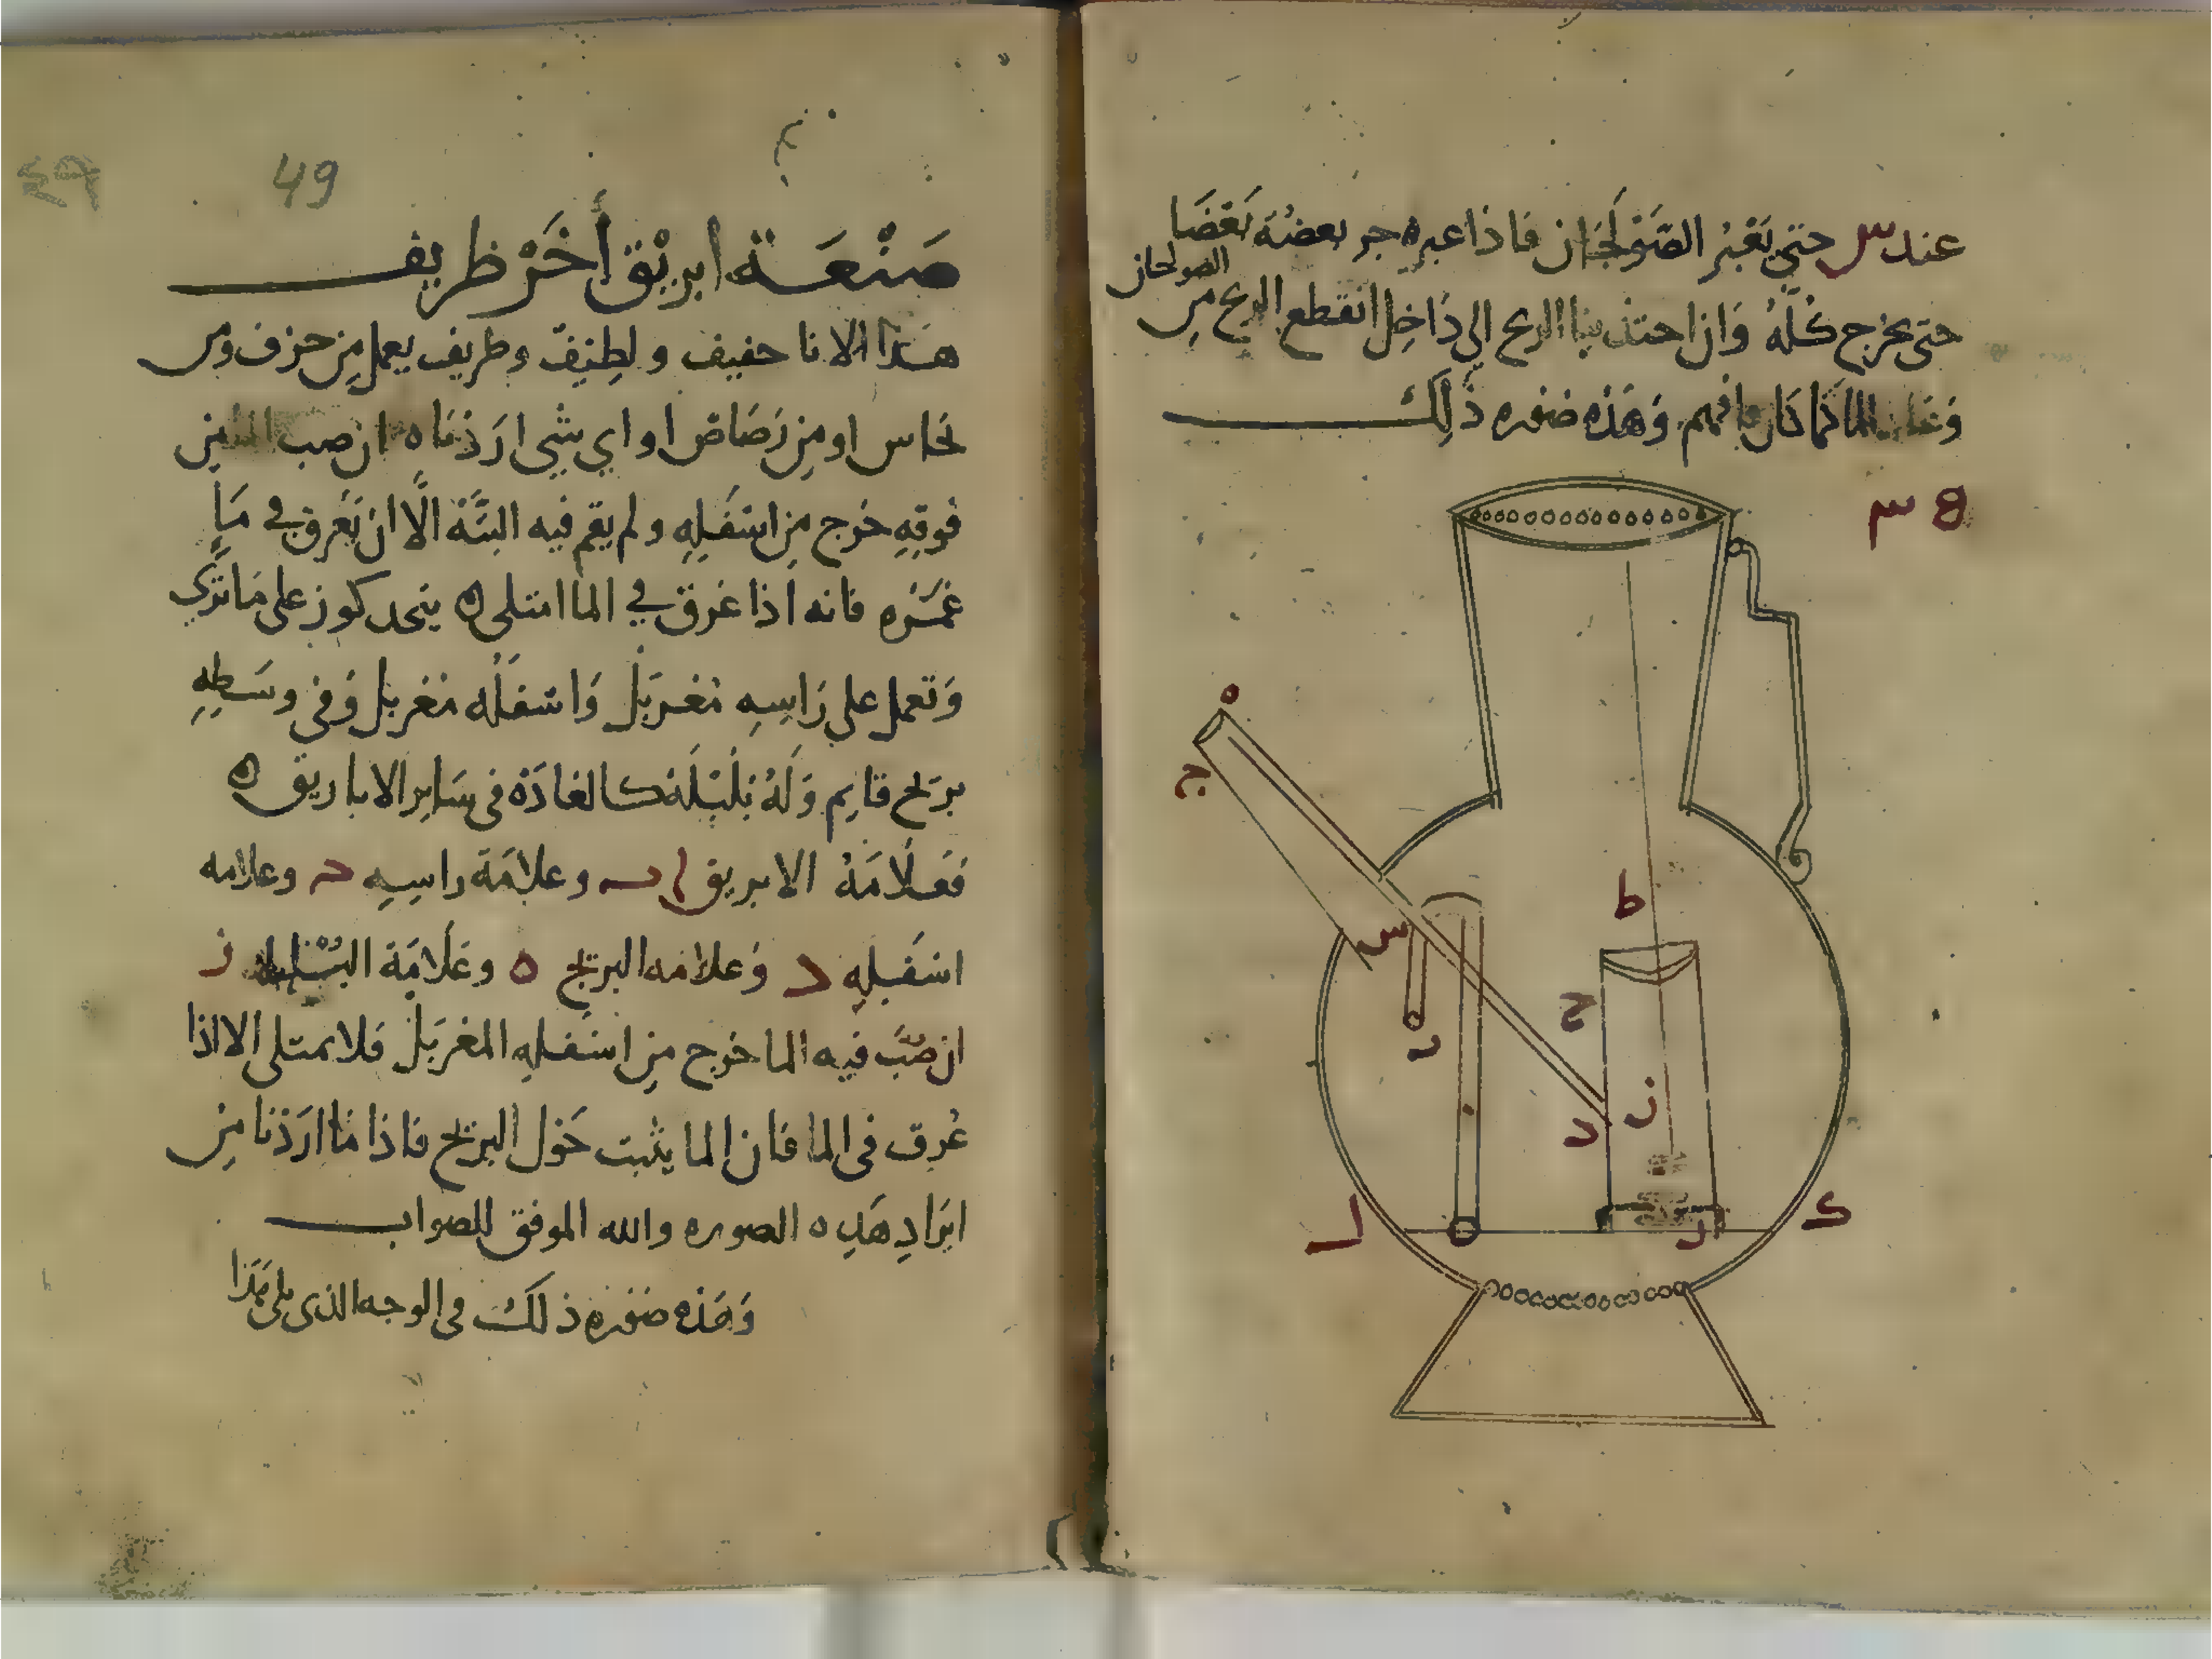 عند س حتى تغبر الصولجان فاذا عبره جر بعضه بعضا
حتى يخرج كله وان احتذبنا الريح الى داخل انقطع الريح من
الصولجان
الما كما كان فافهم وهذه صوره ذلك
8 س
ه
ج
س
د
ط
ح
ز
د
ل
ر
ك
49
٤٩
صنعة ابريق أخر ظريف
هذا الانا خفيف ولطيف وظريف يعمل من خزف ومن
نحاس او من رصاص او اي شي اردناه ان صب من
فوقه خرج من اسفله ولم يقم فيه البتة الا ان نغرق في ما
غمره فانه اذا غرق في الما امتلى ه يتخد كوز على ما ترى
وتعمل على راسه مغربل واسفله مغربل وفى وسطه
بربخ قايم وله بلبله كالعادة فى ساير الاباريق ه
فعلامة الابريق ا ب وعلامة راسه ح وعلامه
اسفله د وعلامه البربخ ه وعلامة البلبله ز
ان صب فيه الما خرج من اسفله المغربل فلا يمتلى الا اذا
غرق فى الما فان الما يثبت حول البربخ فاذا ما اردنا من
ايراد هذه الصوره والله الموفق للصواب
وهذه صوره ذلك فى الوجه الذى يلى هذا